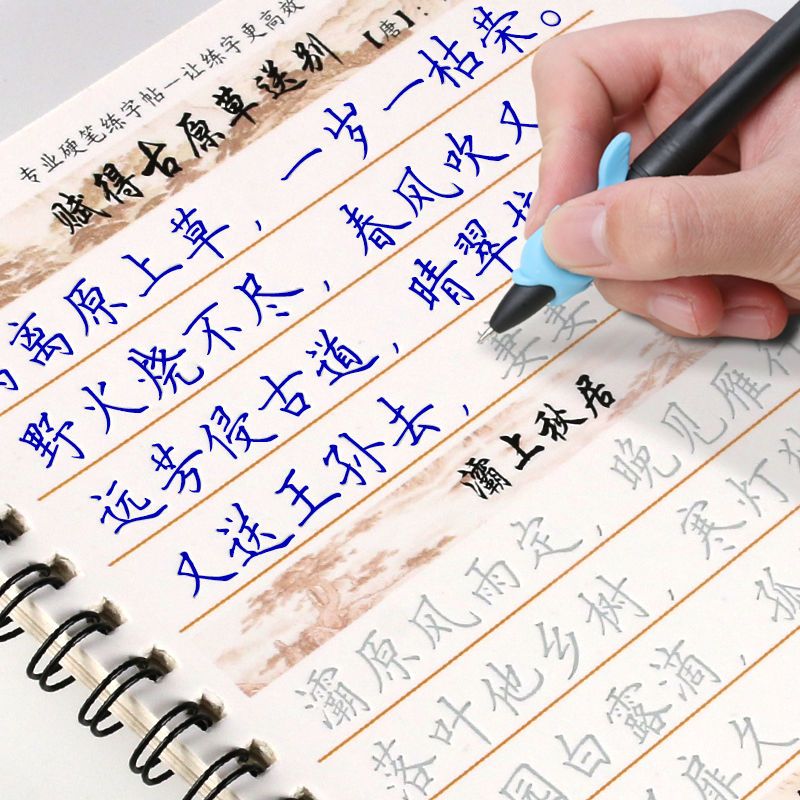 专业硬笔练字帖—让练字更高效
赋得古原草送别 【唐】:
离原上草，一岁一枯荣。
野火烧不尽，春风吹又
远芳侵古道，晴翠
又送王孙去，萋萋
灞上秋居
灞原风雨定，晚见雁行
落叶他乡树，寒灯独
园白露滴，孤
扉久